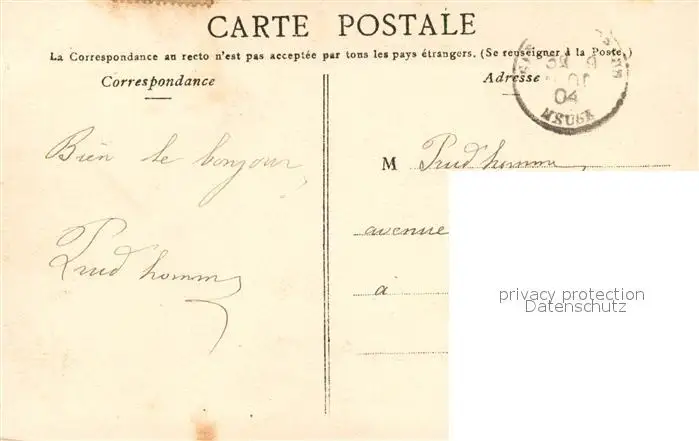 CARTE POSTALE
La Correspondance au recto n'est pas acceptée par tous les pays étrangers. (Se renseigner à la Poste.)
Correspondance
Adresse
04
MEUSE
Bien le bonjour
Prud'homme
M Prud'homme,
avenue
à
privacy protection
Datenschutz